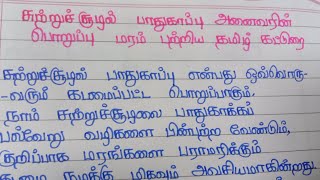 சுற்றுச்சூழல் பாதுகாப்பு அனைவரின்
பொறுப்பு மரம் பற்றிய தமிழ் கட்டுரை
சுற்றுச்சூழல் பாதுகாப்பு என்பது ஒவ்வொரு-
-வரும் கடமைப்பட்ட பொறுப்பாகும்,
நாம் சுற்றுச்சூழலை பாதுகாக்கப்
பல்வேறு வழிகளை பின்பற்ற வேண்டும்,
குறிப்பாக மரங்களை பராமரிக்கும்
நமக்கு மிகவும் அவசியமாகின்றது